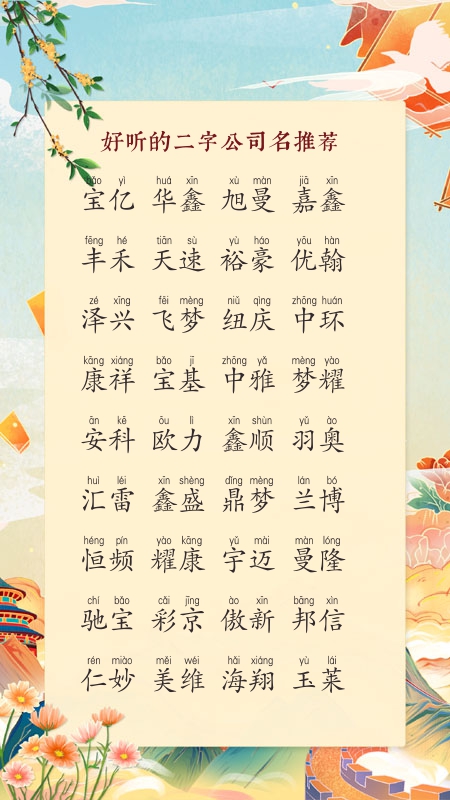 好听的二字公司名推荐
bǎo yì huá xīn xù màn jiā xīn
宝亿 华鑫 旭曼 嘉鑫
fēng hé tiān sù yù háo yōu hàn
丰禾 天速 裕豪 优翰
zé xīng fēi mèng niǔ qìng zhōng huán
泽兴 飞梦 纽庆 中环
kāng xiáng bǎo jī zhōng yǎ mèng yào
康祥 宝基 中雅 梦耀
ān kē ōu lì xīn shùn yǔ ào
安科 欧力 鑫顺 羽奥
huì léi xīn shèng dǐng mèng lán bó
汇雷 鑫盛 鼎梦 兰博
héng pín yào kāng yǔ mài màn lóng
恒频 耀康 宇迈 曼隆
chí bǎo cǎi jīng ào xīn bāng xìn
驰宝 彩京 傲新 邦信
rén miào měi wéi hǎi xiáng yù lái
仁妙 美维 海翔 玉莱